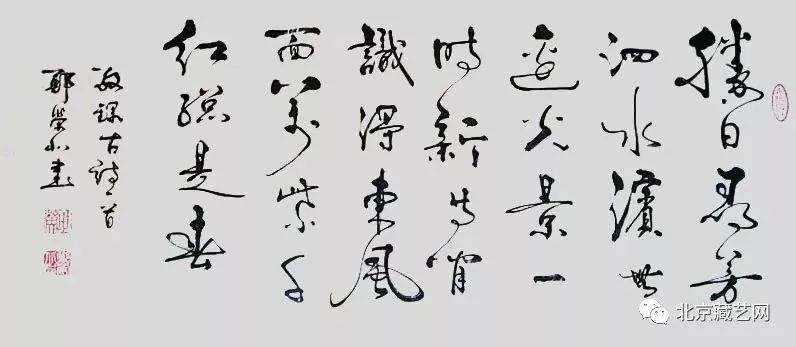 勝日尋芳
泗水濱無
邊光景一
時新等閒
識得東風
面萬紫千
紅總是春
敬錄古詩一首
鄭書
北京藏艺网